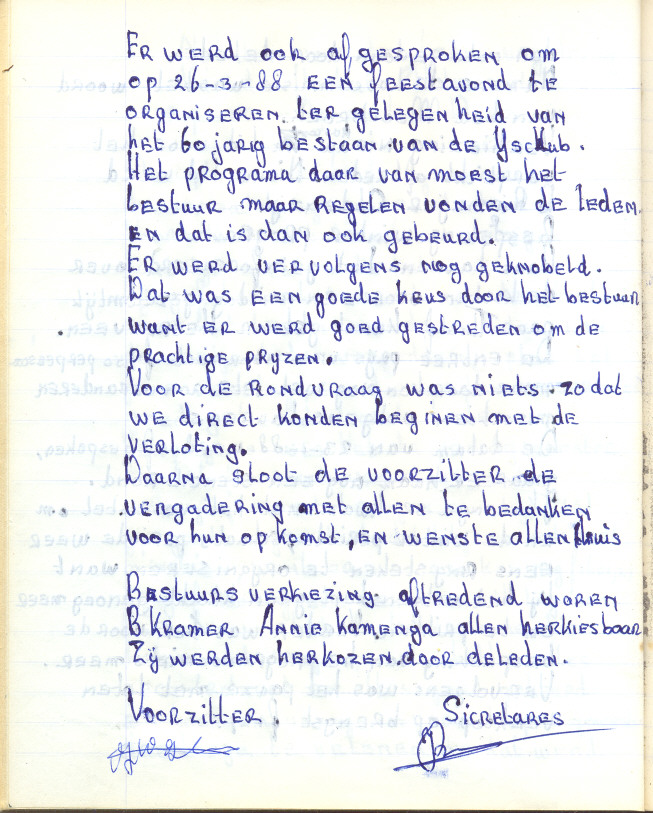 Er werd ook afgesproken om
op 26-3-88 een feestavond te
organiseren ter gelegenheid van
het 60 jarig bestaan van de Ysclub.
Het programa daar van moest het
bestuur maar regelen vonden de leden.
en dat is dan ook gebeurd.
Er werd vervolgens nog geknobeld.
Dat was een goede keus door het bestuur
want er werd goed gestreden om de
prachtige pryzen.
Voor de rondvraag was niets. zodat
we direct konden beginen met de
verloting.
Daarna sloot de voorzitter de
vergadering met allen te bedanken
voor hun opkomst, en wenste allen thuis
Bestuurs verkiezing aftredend waren
B Kramer Annie Kamenga allen herkiesbaar
Zij werden herkozen door de leden.
Voorzitter. Sicretares